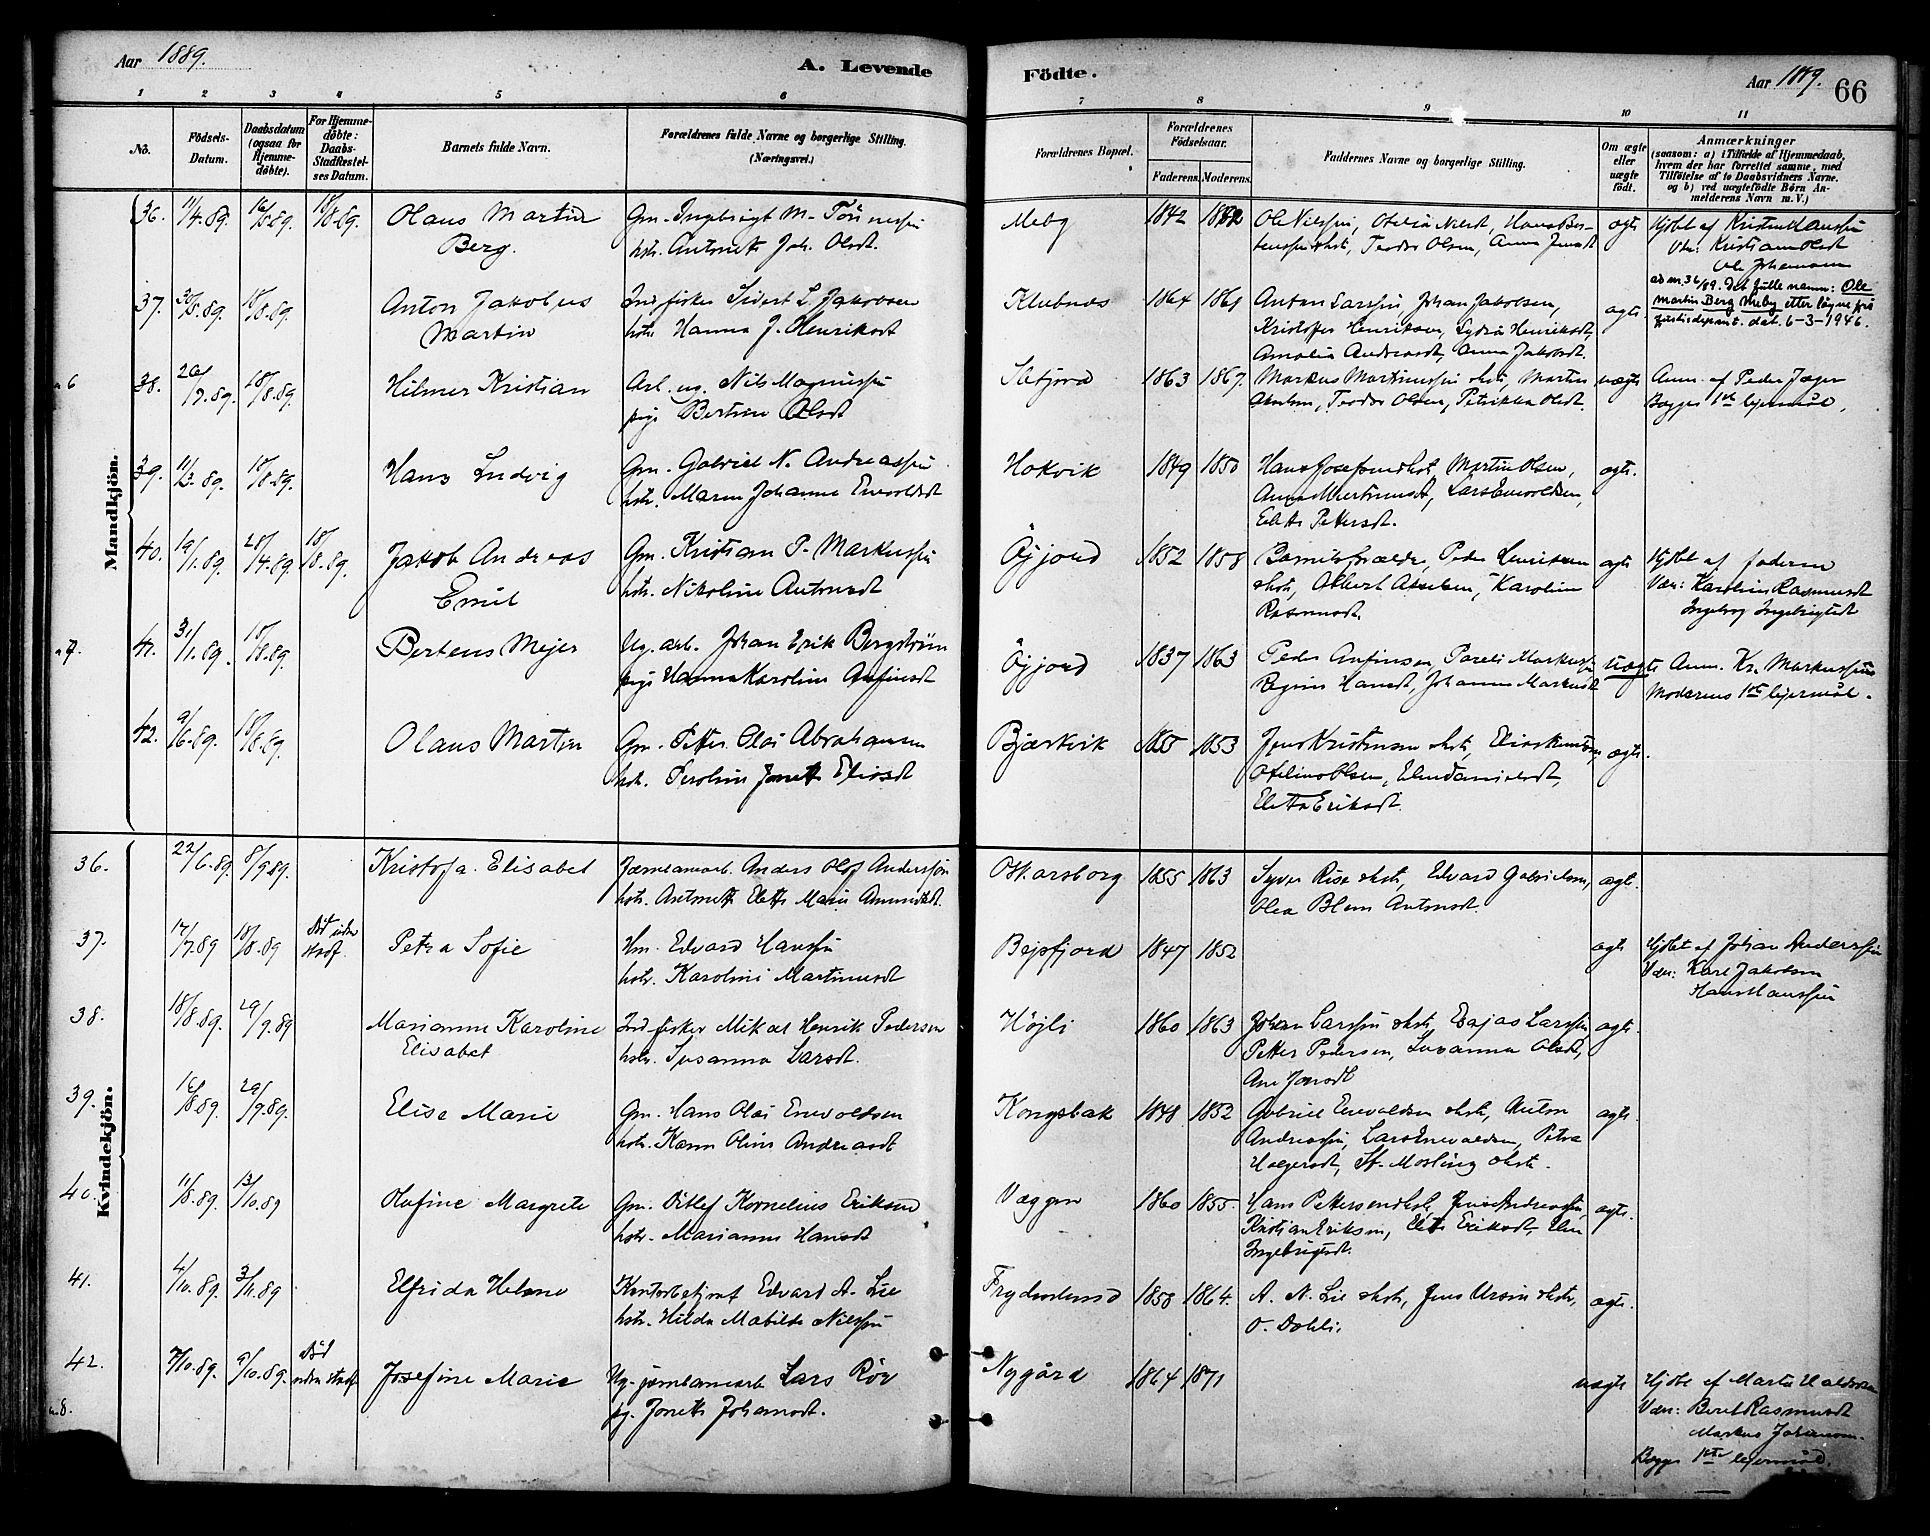 Aar 1889.
A. Levende
Födte.
Aar 1889.
66
1 2 3 4 5 6 7 8 9 10 11
No.
Fødsels-
Datum.
Daabsdatum
(ogsaa for
Hjemme-
døbte).
For Hjemme-
døbte:
Daabs-
Stadfæstel-
ses Datum.
Barnets fulde Navn.
Forældrenes fulde Navne og borgerlige Stilling.
(Næringsvei.)
Forældrenes Bopæl.
Forældrenes
Fødselsaar.
Faderens. Moderens.
Faddernes Navne og borgerlige Stilling.
Om ægte
eller
uægte
født.
Anmærkninger
(saasom: a) i Tilfælde af Hjemmedaab,
hvem der har forrettet samme, med
Tilføielse af to Daabsvidners Navne.
og b) ved uægtefödte Börn An-
melderens Navn m. V.)
Mandkjön.
36. 11/4.89. 18/8.89. Olaus Martin
Berg.
Gm. Ingebrigt M.
hstr. Antonette Joh. Olsdt.
Meby 1842
Ole Nilssen, Teodor Olsen, Anna
ægte
Hjdbt af Kristen Hanssen
Vdn: Kristianne Olsdt
Ole Johannesen
ad nr. 36/89. Det fulle namn: Ole
Martin Berg Meby etter løyve frå
justisdepmt. dat. 6-3-1946.
37. 30/5.89. 18/8.89. Anton Jakobus
Martin
Ind. fisker Sivert L. Jakobsen
hstr. Hanna J. Henriksdt
Klubnes 1864 1861
Anton Larssen, Johan Jakobsen,
Kristoffer Henriksen, Lydia Henriksdt,
Amalia Andreasdt, Anna Jakobsdt.
ægte.
a 6
38. 18/8.89. Hilmer Kristian
Arb. ug. Nils Magnussen
pige Bertine Olsdt
1863 1867.
Markus Martinussen hstr, Martin
Teodor Olsen, Petrikka Olsdt.
uægte
Anm. af Peder Jæger
Begges 1ste leiermål.
39. 11/3.89. 18/8.89. Hans Ludvig
Gm. Gabriel N. Andreassen
hstr. Maren Johanna Enevoldsdt
Hokvik 1849 1850
Hans Josefsen hstr, Martin Olsen,
Lars Enevoldsen,
Petersdt.
ægte.
40. 19/1.89. 28/4.89. 18/8.89. Jakob Andreas
Emil
Gm. Kristian P. Markussen
hstr. Nikoline Antonsdt
Øyjord 1852 1858
Barnets forældre, Peder Lauritsen
hstr, Albert Axelsen, Karoline
Rasmusdt.
ægte
Hjdbt af faderen
Vdn: Karoline Rasmusdt
Ingeborg Ingebrigtsdt
a 7.
41. 31/1.89. 18/8.89. Bertens Mejer
Ug. arb. Johan Erik Bergstrøm
pige Hanna Karoline Anfinsdt
Øyjord 1837 1863
Peder Anfinsen, Pareli Markussen
Regine Hansdt, Johanna Markusdt
uægte
Anm. Kr. Markussen
Moderens 1ste leiermål.
42. 9/6.89. 18/8.89. Olaus Martin
Gm. Petter Olai Abrahamsen
hstr. Peroline Jonette Eliasdt
Bjerkvik 1855 1853
Jens Kristensen hstr, Elias Knutsen,
Ofelius Olsen, Elen Danielsdt,
Eletta Eriksdt.
ægte.
Kvindekjön.
36. 22/6.89. 8/9.89. Kristofa Elisabet
Jærnbanearb. Anders Olof Andersson
hstr. Antonette Elette Marie Amundsdt.
Oskarsborg 1855 1863
Syver Risa hstr, Edvard Gabrielsen,
Olea Blom Antonsdt.
ægte.
37. 17/7.89 18/8.89 Död uden
stadf.
Petra Sofie
Hm. Edvard Hanssen
hstr. Karoline Martinusdt
Bejsfjord 1847 1852
ægte
Hjdbt af Johan Anderssen
Vdn: Karl Jakobsen
Hans Hanssen
38. 18/8.89. 29/9.89 Marianne Karoline
Elisabet
Ind. fisker Mikal Henrik Pedersen
hstr. Susanna Larsdt.
Højli 1860 1863
Johan Larssen hstr, Esajas Larssen
Petter Pedersen, Susanna Olsdt,
Ane Jonsdt
ægte.
39. 16/8.89. 29/9.89. Elise Marie
Gm. Hans Olai Enevoldsen
hstr. Karen Oline Andreasdt
Kongsbak 1848 1852
Gabriel Enevoldsen hstr, Anton
Andreassen, Lars Enevoldsen, Petra
Holgersdt, St. Mosling hstr.
ægte.
40. 11/8.89. 13/10.89 Olufine Margrete
Gm. Ditlef Kornelius Eriksen
hstr. Marianne Hansdt
Væggen 1860 1855.
Hans Pettersen hstr, Jens Andreassen,
Kristian Eriksen, Elette Eriksdt, Elen
Ingebrigtsdt.
ægte.
41. 4/10.89. 3/11.89 Elfrida Helene
Kontorbetjent Edvard A. Lie
hstr. Hilda Matilde Nilssen
Frydenlund 1858 1864.
A. N. Lie hstr, Jens Ursin hstr,
O. Dahli.
ægte.
42. 7/10.89. 9/10.89. Död
uden stadf
Josefine Marie
Ug. jærnbanearb Lars Rør
pg. Jonette Johansdt.
Nygård 1864 1871
uægte
Hjdbt af Martin
Vdn: Beret Rasmusdt
Markus Johannesn.
Begges 1ste leiermål.
a 8.